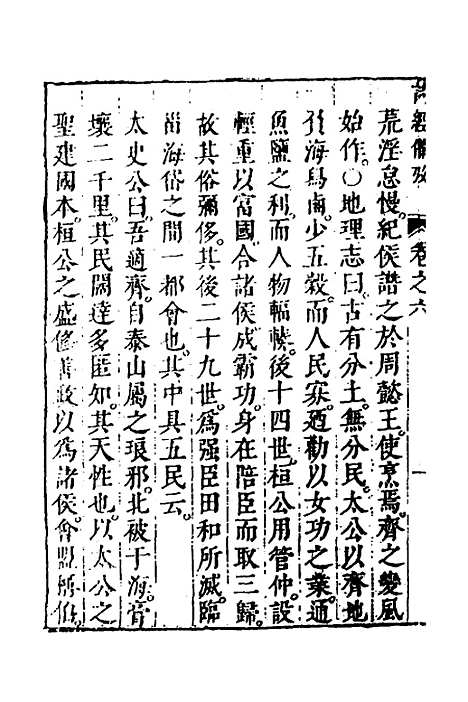 詩經備攷 卷之六 一
荒淫怠慢。紀侯譖之於周懿王。使烹焉。齊之變風
始作。○地理志曰。古有分土。無分民。太公以齊地
負海舄鹵。少五穀。而人民寡。迺勸以女功之業。通
魚鹽之利。而人物輻輳。後十四世。桓公用管仲。設
輕重以富國。合諸侯成霸功。身在陪臣而取三歸。
故其俗彌侈。其後二十九世。爲强臣田和所滅。臨
甾海岱之間一都會也。其中具五民云。
太史公曰。吾適齊。自泰山屬之琅邪。北被于海。膏
壤二千里。其民闊達多匿知。其天性也。以太公之
聖建國本。桓公之盛修善政。以爲諸侯會盟。稱伯。